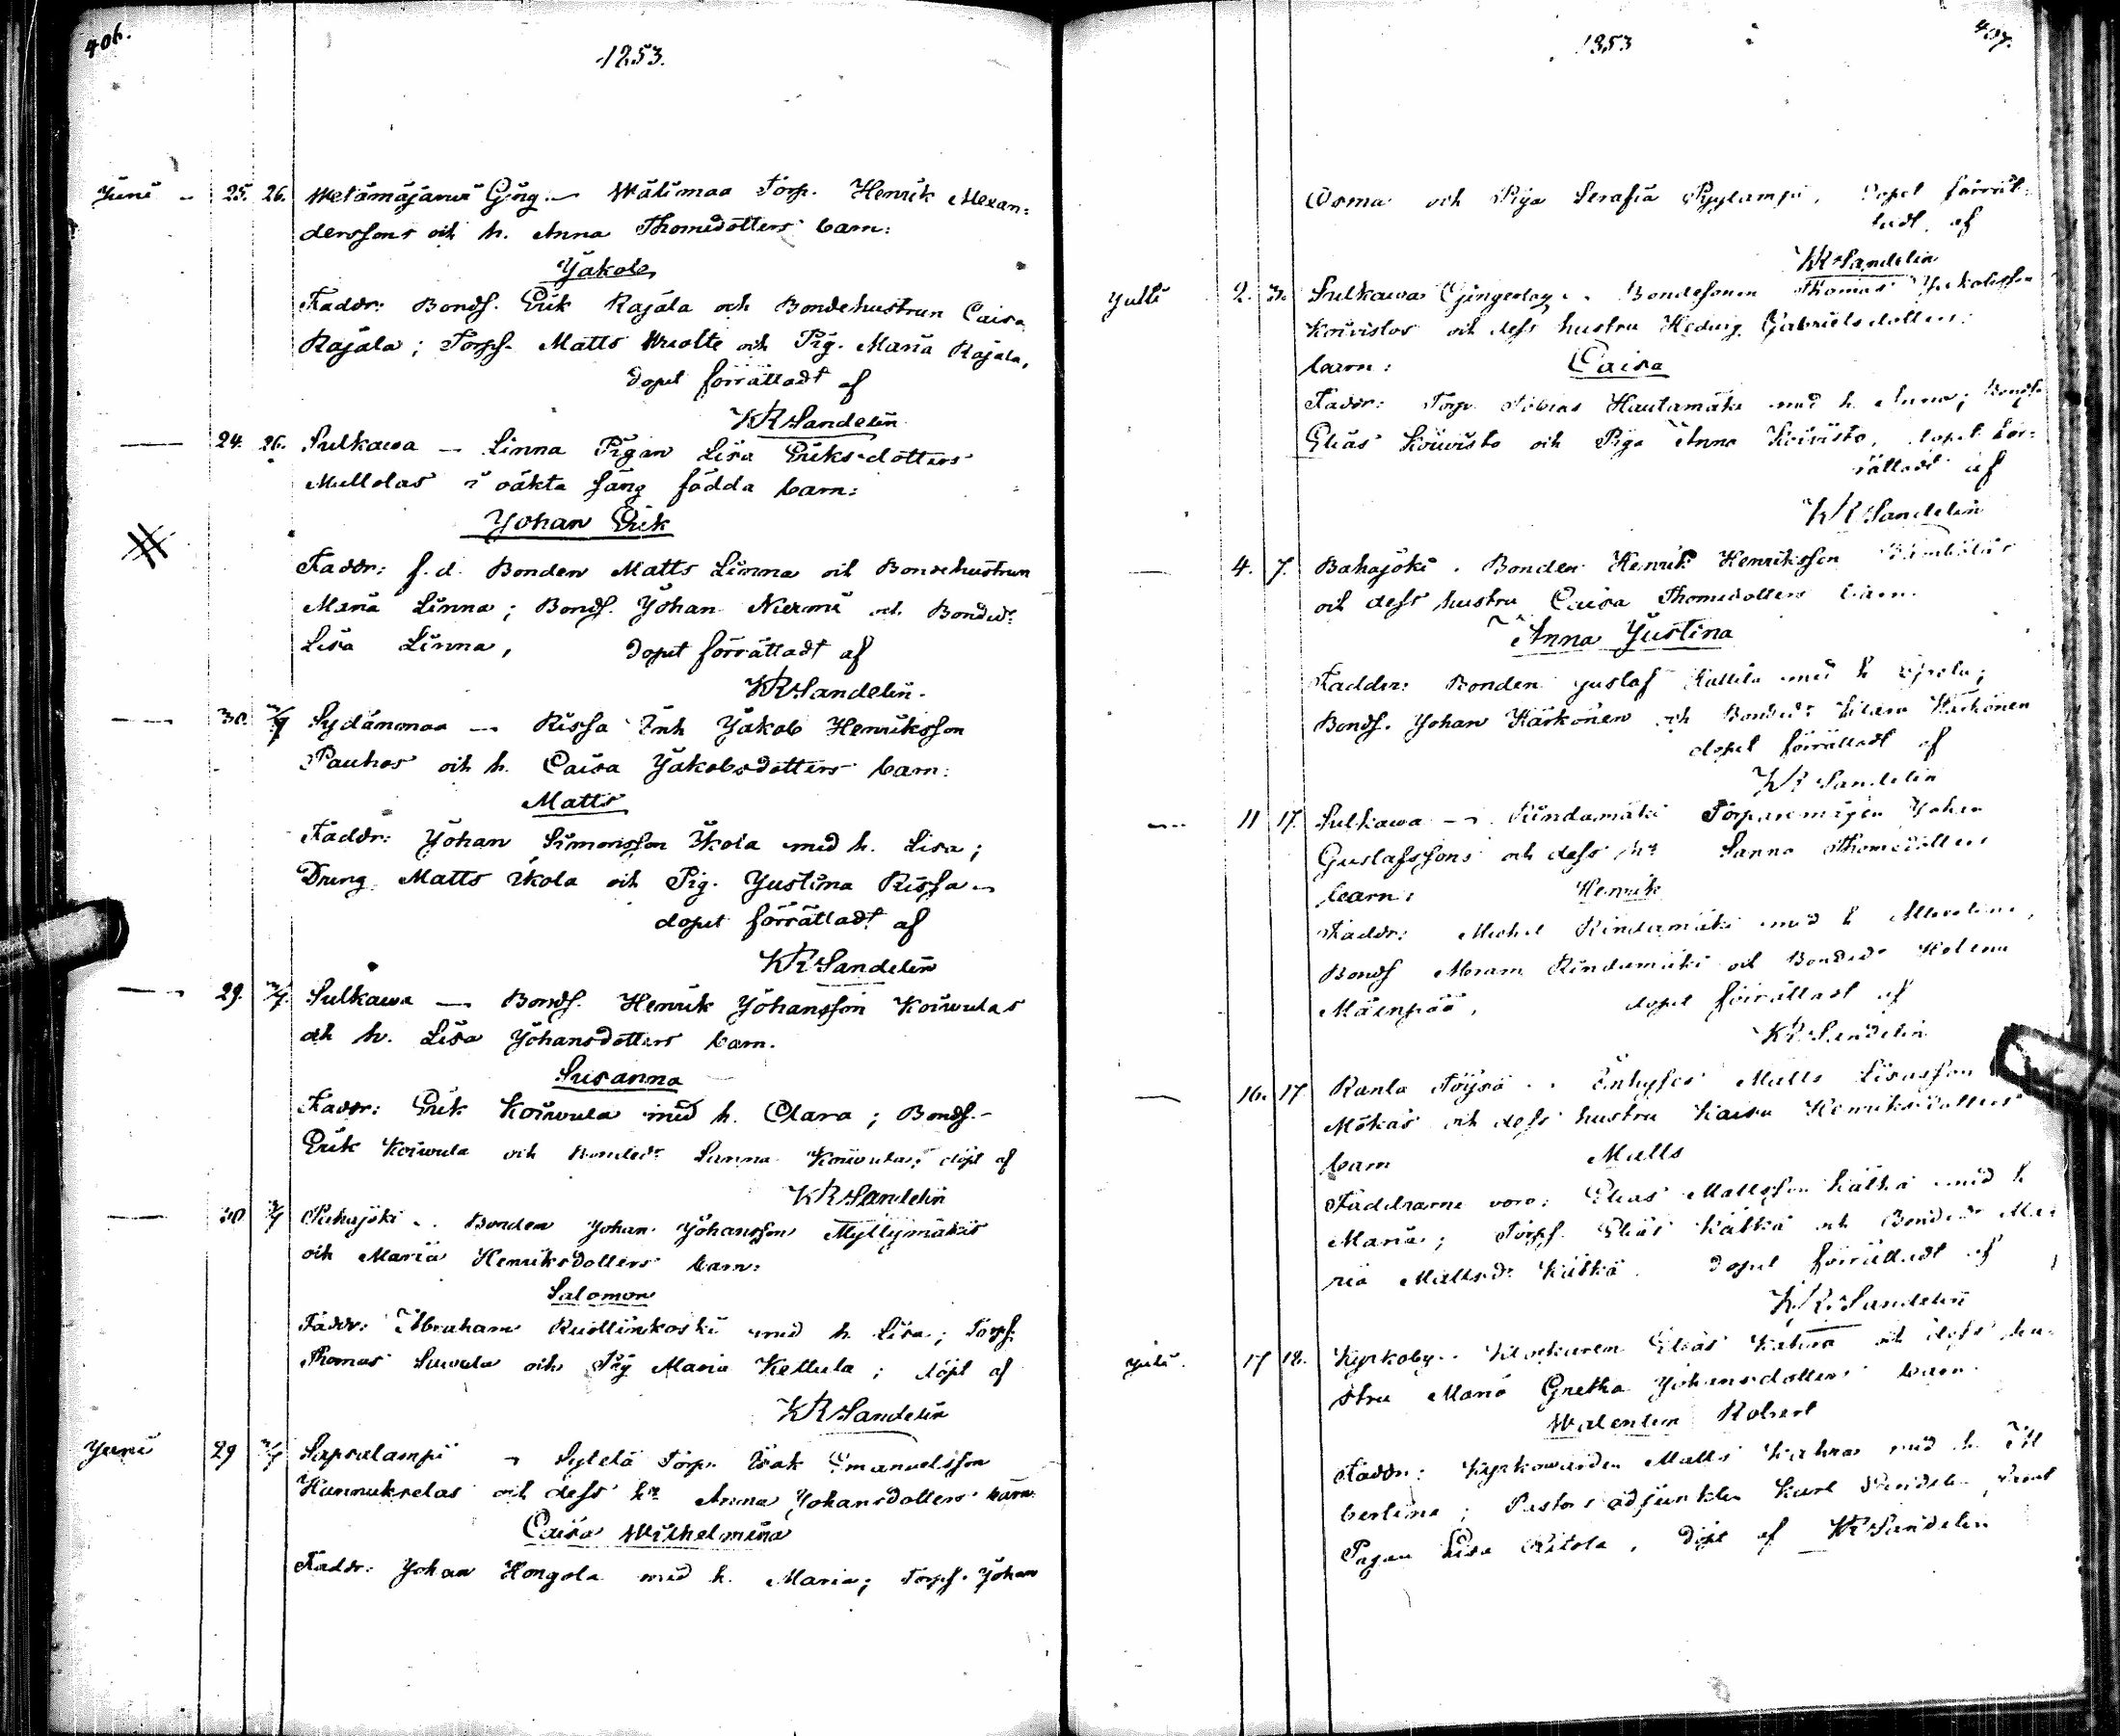 406.
1853.
Juni - 25. 26. Metämäjärwi Gäng. - Wälimaa Torp. Henrik Alexan=
derssons och h. Anna Thomedotters barn:
Jakob
Faddr: Bonds. Erik Rajala och Bondehustrun Caisa
Rajala; Torps. Matts Wuolte och Pig. Maria Rajala,
dopet förrättadt af
KR Sandelin
— 24. 26. Sulkawa - Linna Pigan Lisa Eriksdotters
Mullolas i oäkta säng födda barn:
Johan Erik
Faddr: f.d. Bonden Matts Linna och Bondehustrun
Maria Linna; Bonds. Johan Niermi och Bonded:
Lisa Linna, dopet förrättadt af
KR Sandelin.
— 30. 3/7 Sydänmaa - Rissa Inh Jakob Henriksson
Pauhos och h. Caisa Jakobsdotters barn:
Matts
Faddr: Johan Simonsson Ikola med h. Lisa;
Dreng Matts Ikola och Pig. Justina Rissa -
dopet förrättadt af
KR Sandelin
— 29. 3/7. Sulkawa - Bonds. Henrik Johansson Koiwulas
och h. Lisa Johansdotters barn.
Susanna
Faddr: Erik Koiwula med h. Clara; Bonds.
Erik Koiwula och Bonded: Sanna Koiwula; döpt af
KR Sandelin
— 30 3/7 Pahajoki - Bonden Johan Johansson Myllymäkis
och Maria Henriksdotters barn:
Salomon
Faddr: Abraham Ruollinkoski med h. Lisa; Torps.
Thomas Suwula och Pig Maria Kettula; döpt af
KR Sandelin
Juni 29 3/7 Sapsalampi - Sylelä Torp. Isak Emanuelsson
Hannukselas och dess h:u Anna Johansdotters barn
Caisa Wilhelmina
Faddr: Johan Hongola med h. Maria; Torps. Johan
1853
407.
Osma och Piga Serafia Pyylampi, Dopet förrät=
tadt af
KR Sandelin
Julii 2. 3. Sulkawa Gingerlag. Bondesonen Thomas Jakobsson
Koivistos och dess hustru Hedvig Gabrielsdotters
barn: Caisa
Faddr: Torp. Tobias Hautamäki med h. Anna; Bonds.
Elias Koivisto och Piga Anna Koivisto, dopet för=
rättadt af
KR Sandelin
— 4. 7. Bahajoki. Bonden Henrik Henriksson
och dess hustru Caisa Thomedotters barn.
Anna Justina
Faddr: Bonden Gustaf Kallila med h
Bonds. Johan Kärkönen och Bonded: Kärkönen
dopet förrättadt af
KR Sandelin
— 11 17. Sulkawa - Rindamäki Torparemågen Johan
Gustafssons och dess h:u Sanna Thomedotters
barn: Henrik
Faddr: Michel Rindamäki med h
Bonds Abram Rindamäki och Bonded: Helena
Mäenpää, dopet förrättadt af
KR Sandelin
— 16. 17 Ranta Töysä - Inhyses Matts Lisasson
Mökas och dess hustru Kaisa Henriksdotters
barn Matts
Faddrarne voro: Elias Mattsson Kätkä med h
Maria; Torps. Elias Kätkä och Bonded: Ma=
ria Mattsd: Kätkä. Dopet förrättadt af
KR Sandelin
Julii. 17 18. Kyrkoby. Klockaren Elias Kahra och dess hu=
stru Maria Gretha Johansdotters barn
Walentin Robert
Faddr: Kyrkowärden Matts Kahra med h. Al
bertina; Pastorsadjunkten Karl Sandelin samt
Pigan Lisa Ritola, Döpt af KR Sandelin